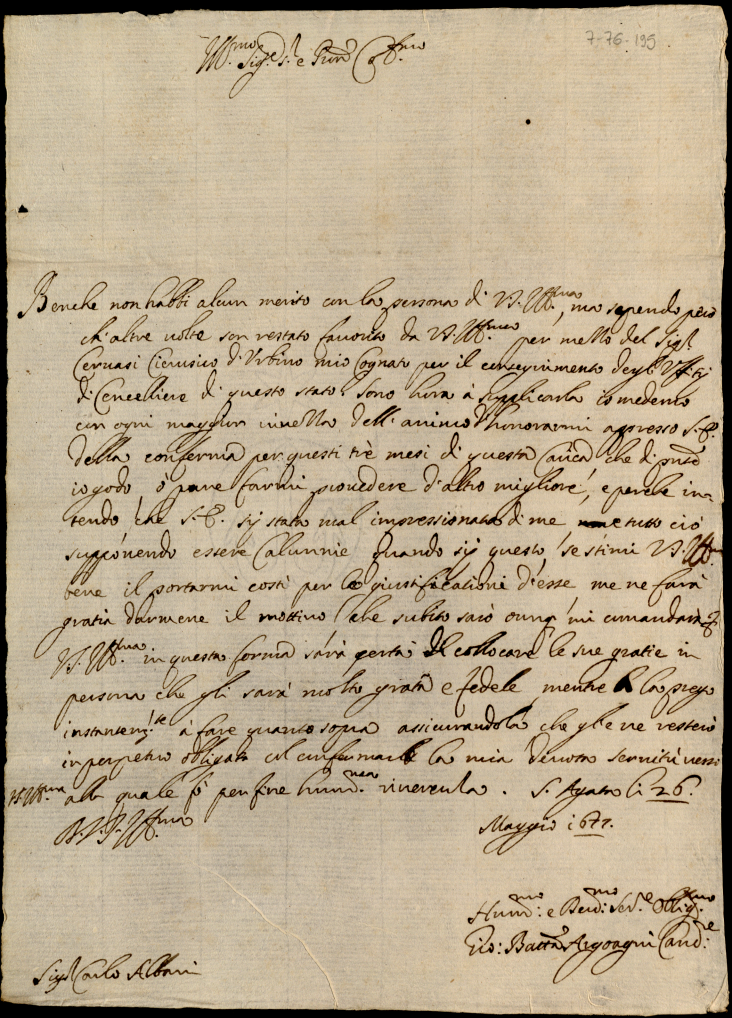 7-76-195
Ill.mo Sig.re e Pron Col.mo
Benche non habbi alcun merito con la persona di V.S. Ill.ma, ma sapendo però
ch'altre volte son restato favorito da V.S. Ill.ma per mezzo del Sig.r
Cervasi Cierusico d'Urbino mio Cognato per il conseguimento degl'Uffitij
di Cancelliere di questo stato. Sono hora à supplicarla comedemo
con ogni maggior della dell'animo d'honorarmi appresso S. E.
della conferma per questi trè mesi di questa carica che di pnte
io godo ò pure farmi provedere d'altro migliore, e perche in-
tendo che S. E. sij stata mal impressionata di me e tutto ciò
supponendo essere Calunnie quando sij questo se stimi V.S. Ill.ma
bene il portarmi costì per le giustificationi d'esse me ne farà
gratia darmene il mottivo che subito sarò ove mi comandarà e
V.S. Ill.ma in questa forma sarà certa di collocare le sue gratie in
persona che gli sarà molto grata e fedele, mentre la prego
instantem.te à fare quanto sopra assicurandola che gl'e ne resterò
in perpetuo obligato col confirmarle la mia devota servitù verso
V.S. Ill.ma alla quale fò per fine hum.ma riverenza. S. Agata li 26.
Maggio 1677.
D. V. S. Ill.ma
Hum.mo e Dev.mo Ser.e Oblig.mo
Gio: Batta Argoagni Canc.e
Sig.r Carlo Albani